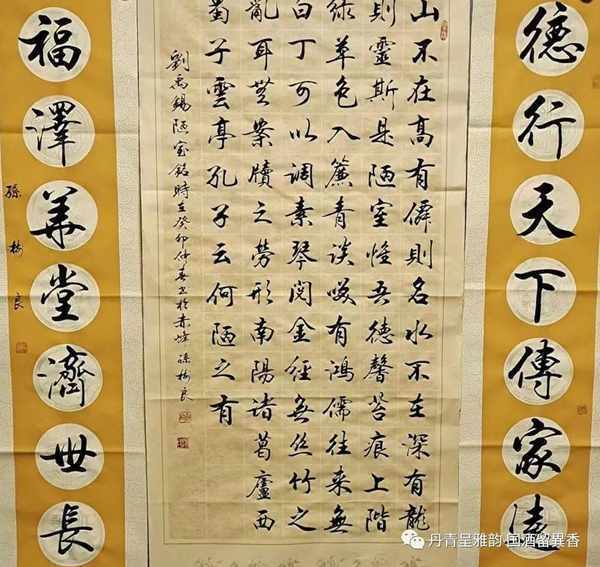 德行天下傳家遠
山不在高有僊則名水不在深有龍
則靈斯是陋室惟吾德馨苔痕上階
綠草色入簾青談咲有鴻儒往來無
白丁可以調素琴閱金經無絲竹之
亂耳無案牘之勞形南陽諸葛廬西
蜀子雲亭孔子云何陋之有
劉禹錫陋室銘時在癸卯仲春書於赤峰 孫 良
福澤華堂濟世長
孫 良
丹青呈雅韵 国酒留異香